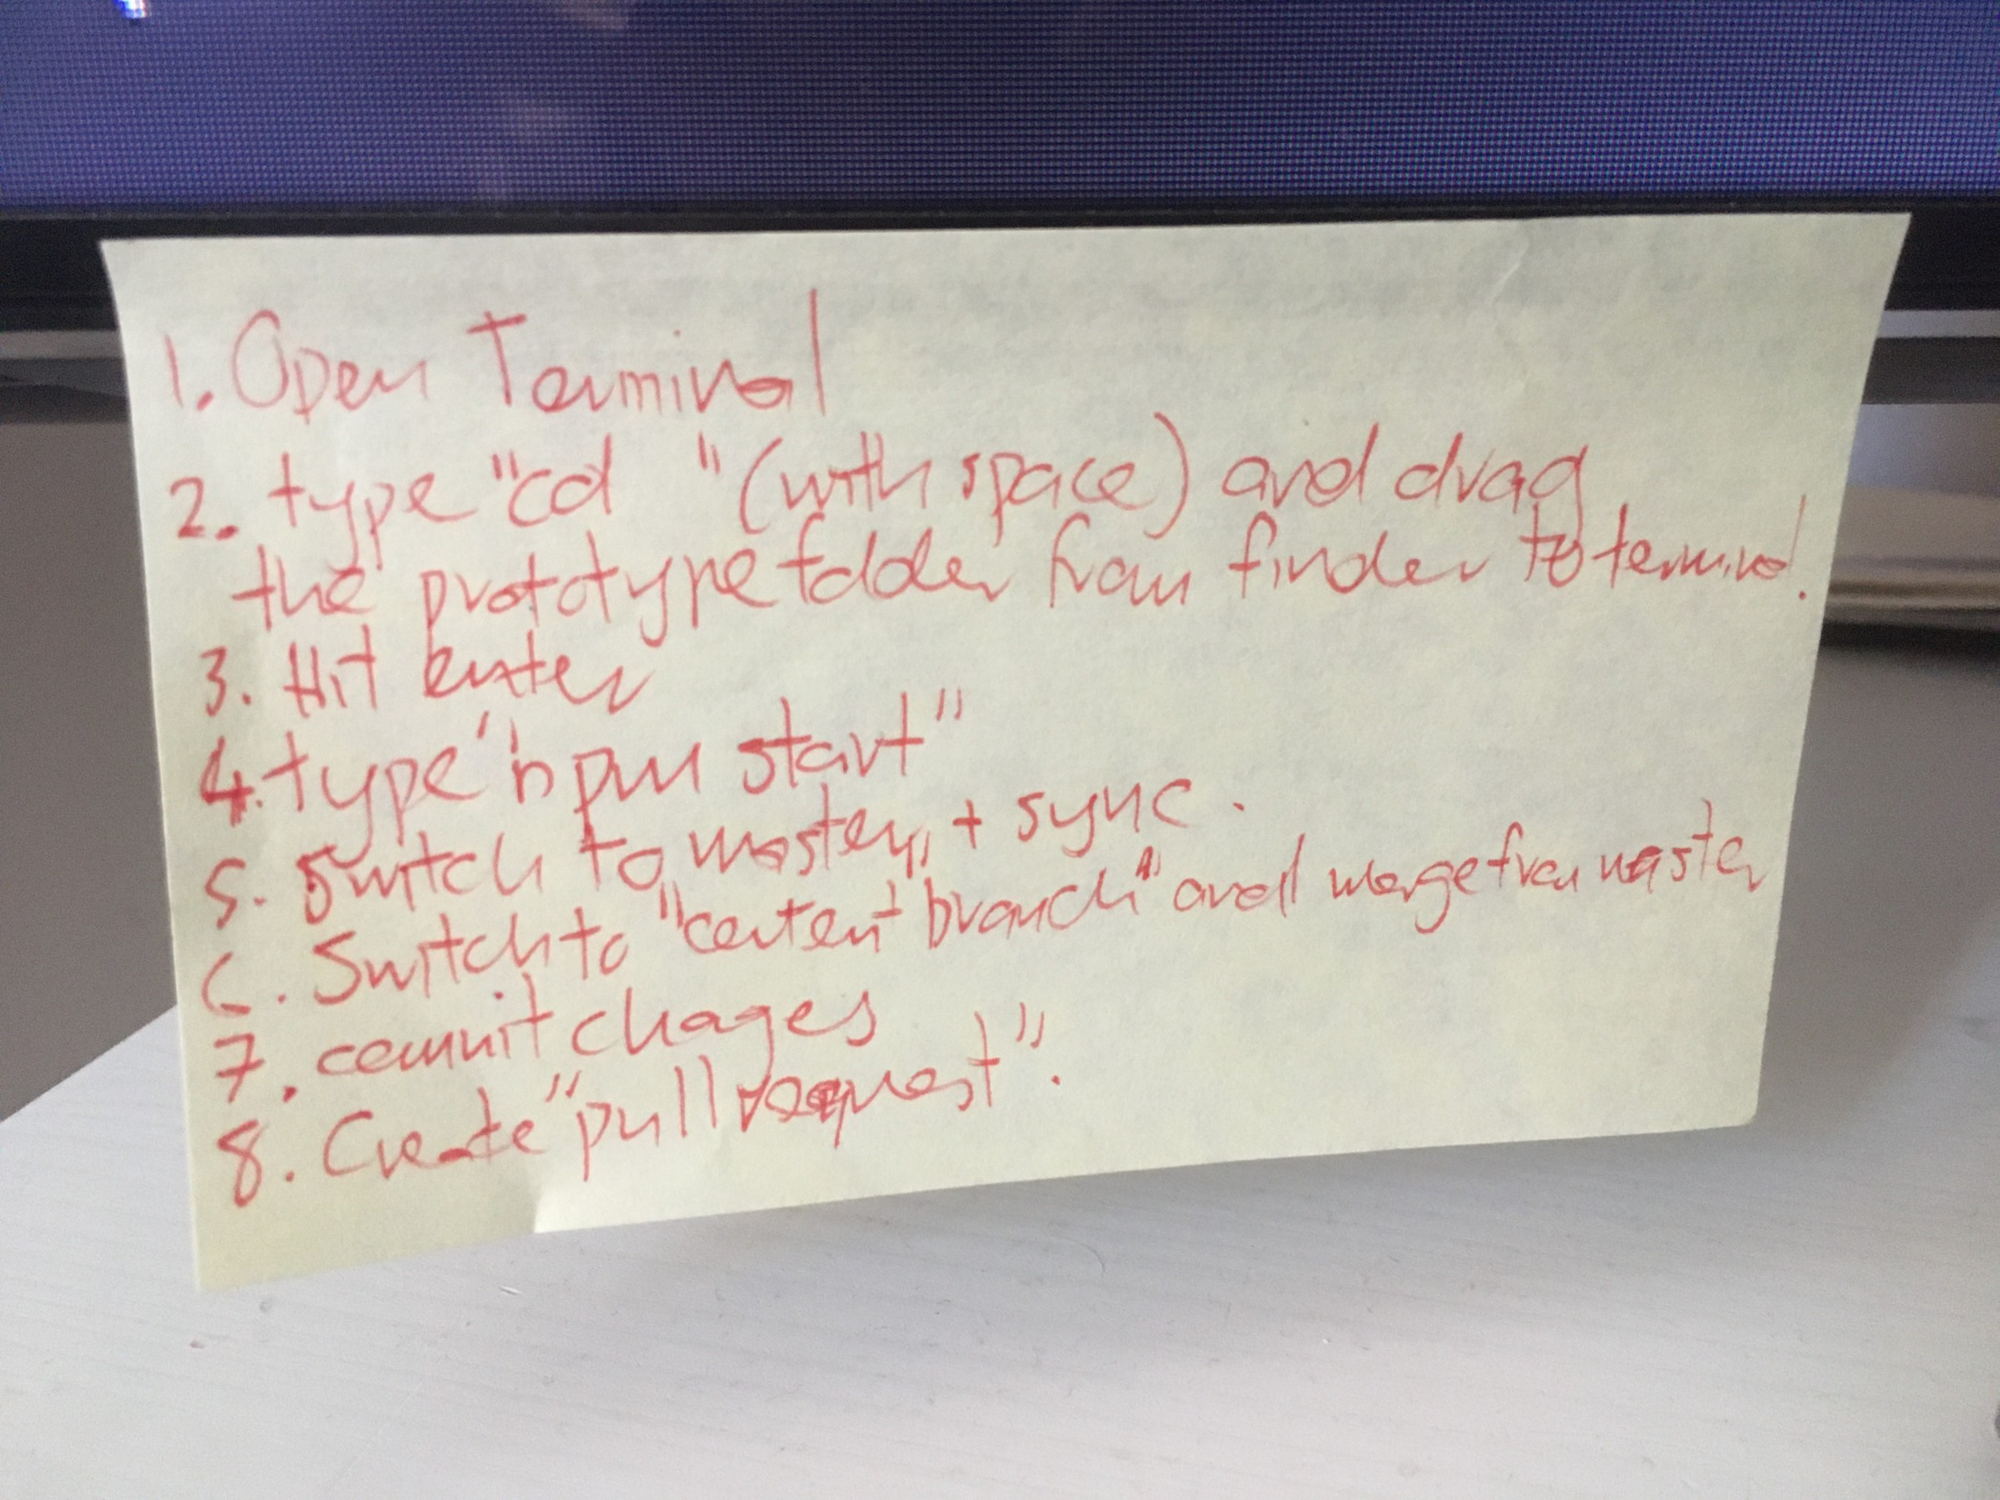 1. Open Terminal
2. type "cd  " (with space) and drag
the prototype folder from finder to terminal.
3. Hit enter
4. type "npm start"
5. Switch to master, + sync.
6. Switch to "content branch" and merge from master
7. commit chages
8. Create "pull request".